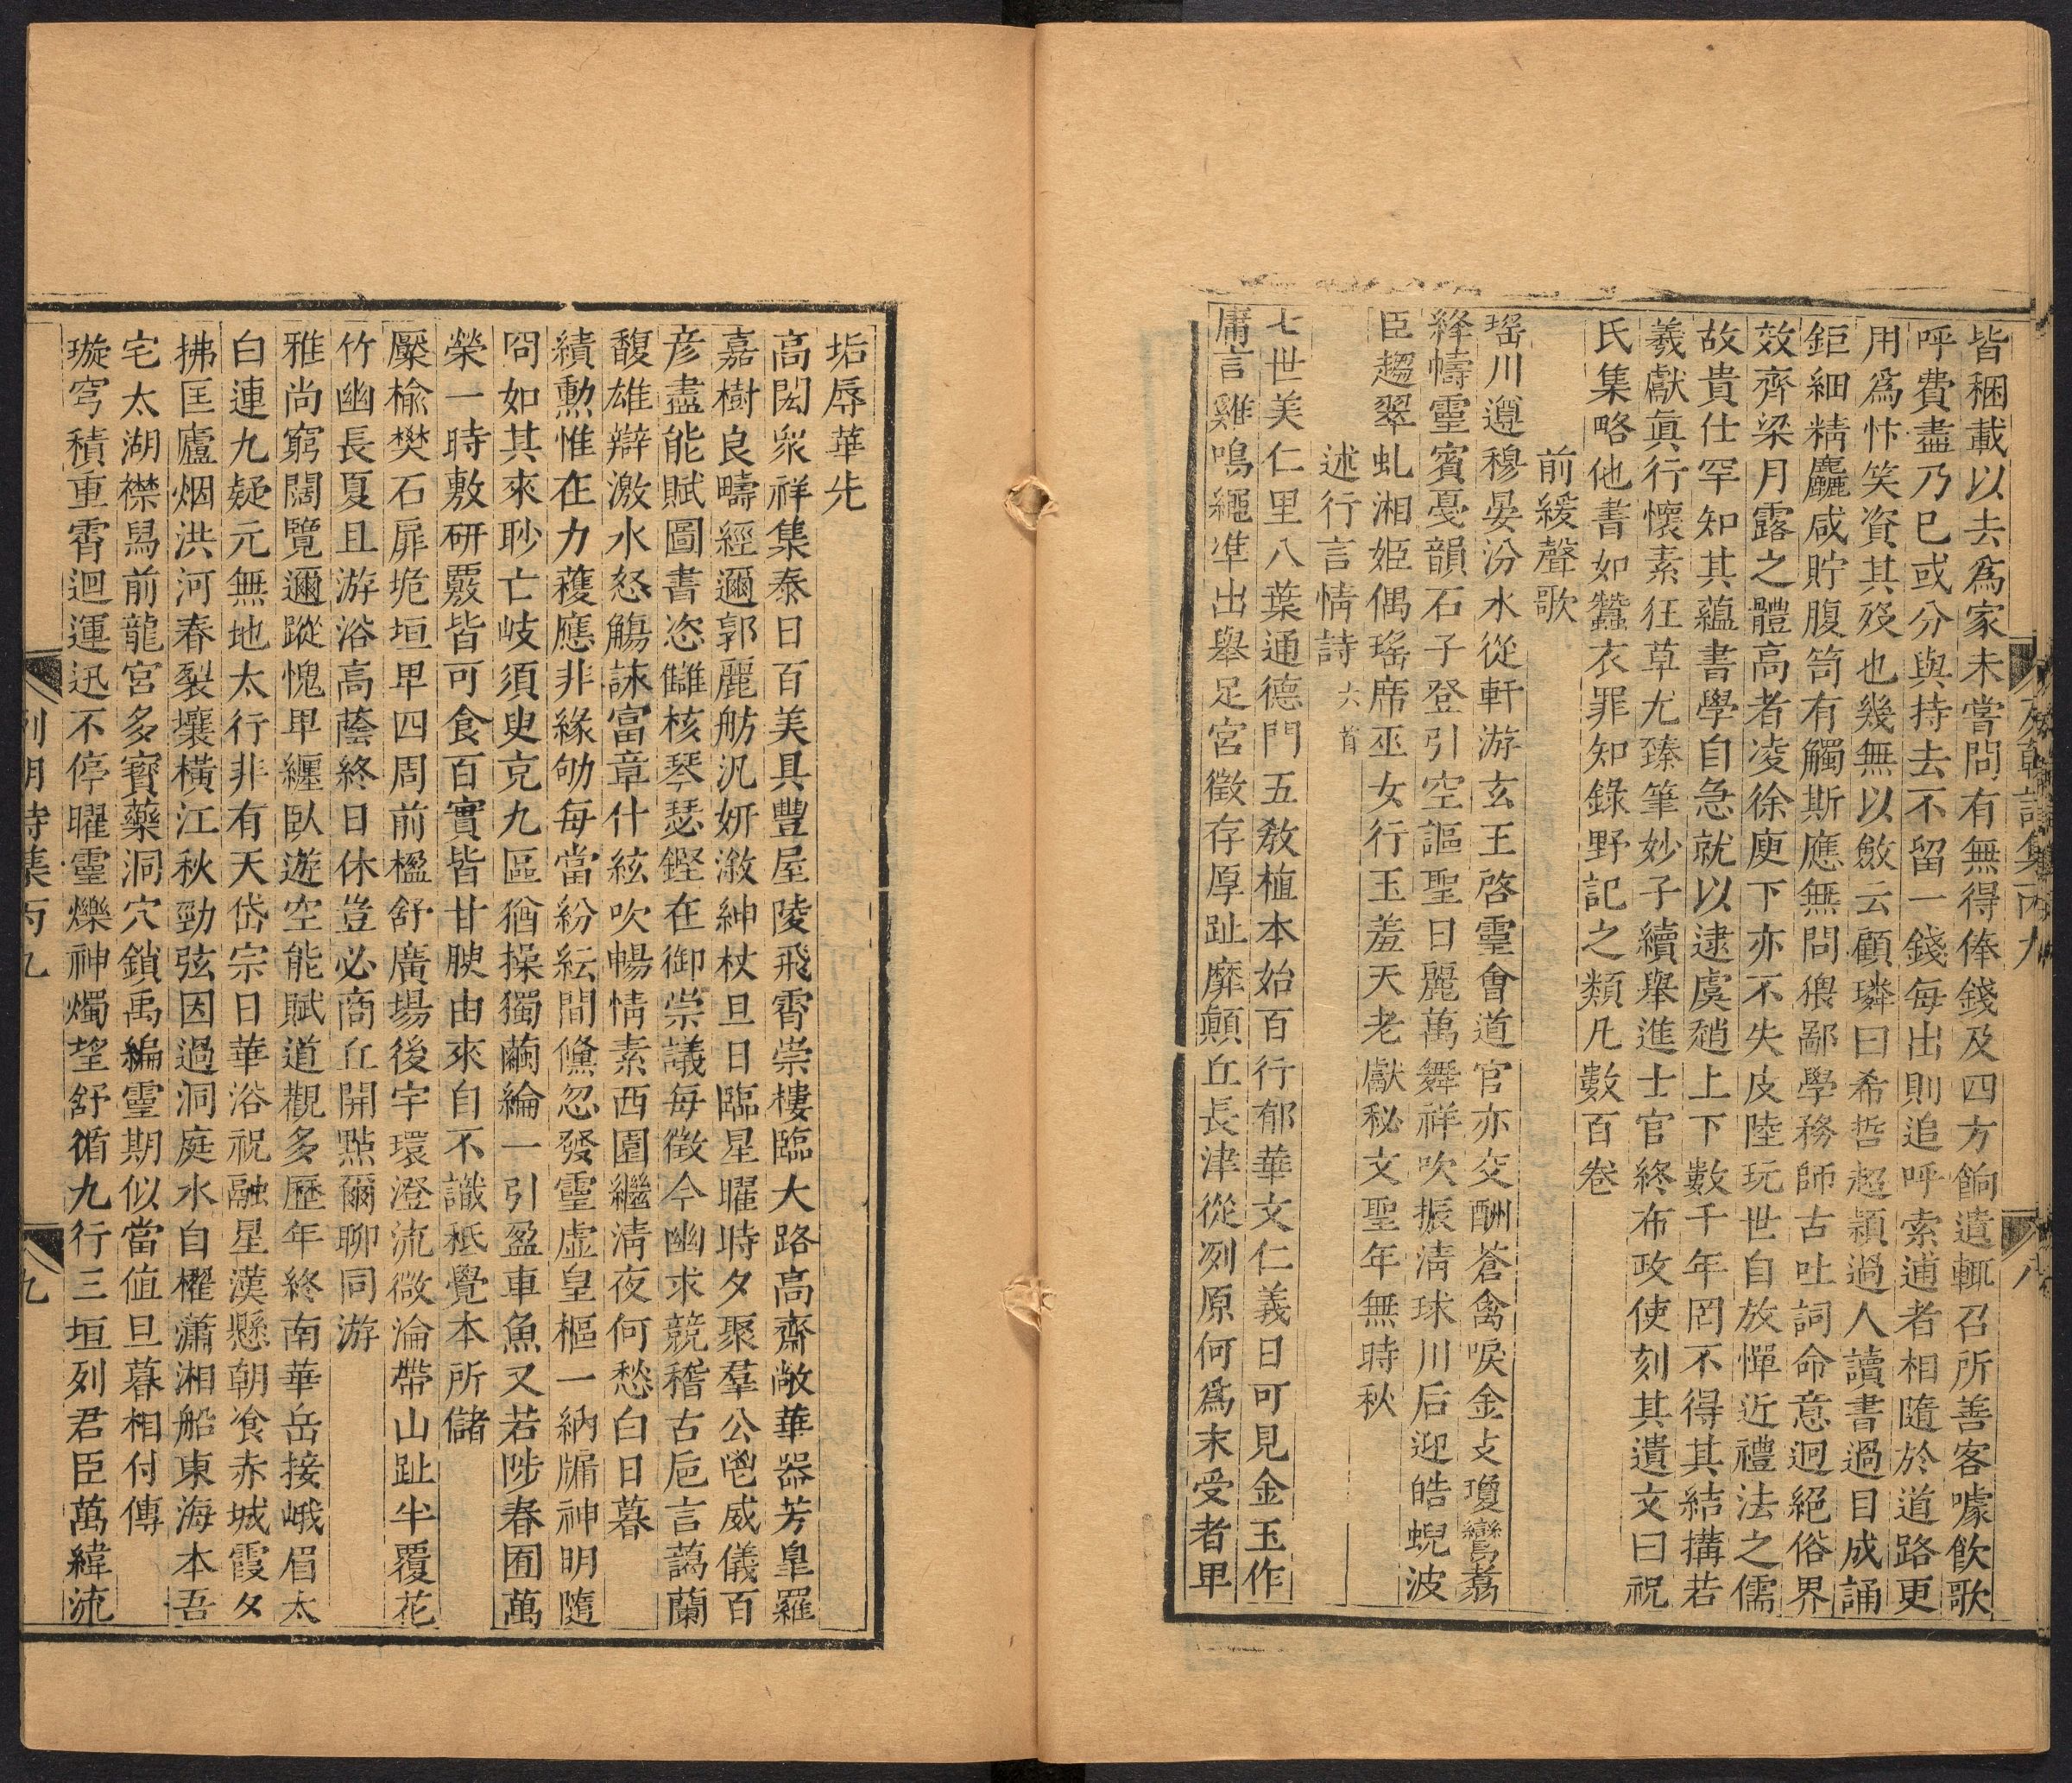 皆稛載以去爲家未嘗問有無得俸錢及四方餉遺輒召所善客噱飲歌
呼費盡乃已或分與持去不留一錢每出則追呼索逋者相隨於道路更
用爲忭笑資其歿也幾無以斂云顧璘曰希哲超穎過人讀書過目成誦
鉅細精麤咸貯腹笥有觸斯應無問猥鄙學務師古吐詞命意迥絕俗界
效齊梁月露之體高者凌徐庾下亦不失皮陸玩世自放憚近禮法之儒
故貴仕罕知其蘊書學自急就以逮虞趙上下數千年罔不得其結搆若
羲獻眞行懷素狂草尤臻筆妙子續舉進士官終布政使刻其遺文曰祝
氏集略他書如蠶衣罪知錄野記之類凡數百卷
前緩聲歌
瑤川遵穆晏汾水從軒游玄王啓靈會道官亦交酬蒼禽唳金支瓊鸞翥
絳幬靈賓戛韻石子登引空謳聖日麗萬舞祥吹振淸球川后迎皓蜺波
臣趨翠虬湘姬偶瑤席巫女行玉羞天老獻秘文聖年無時秋
述行言情詩六首
七世美仁里八葉通德門五敎植本始百行郁華文仁義日可見金玉作
庸言雞鳴繩準出舉足宮徵存厚趾靡顛丘長津從冽原何爲末受者卑
垢辱華先
高閎衆祥集泰日百美具豐屋陵飛霄崇樓臨大路高齋敞華器芳皐羅
嘉樹良疇經邇郭麗舫汎妍漵紳杖旦日臨星曜時夕聚羣公鬯威儀百
彥盡能賦圖書恣讎核琴瑟鏗在御崇議每徵今幽求競稽古巵言藹蘭
馥雄辯激水怒觴詠富章什絃吹暢情素西園繼淸夜何愁白日暮
績勳惟在力蘀應非緣劬每當紛紜間儵忽發靈虛皇樞一納牖神明隨
冏如其來眇亡岐須臾克九區猶操獨繭綸一引盈車魚又若陟春囿萬
榮一時敷研覈皆可食百實皆甘腴由來自不識秪覺本所儲
檿楡樊石扉垝垣卑四周前楹舒廣場後宇環澄流微淪帶山趾半覆花
竹幽長夏且游浴高蔭終日休豈必商丘開點爾聊同游
雅尚窮闊覽邇蹤愧卑纏臥遊空能賦道觀多歷年終南華岳接峨眉太
白連九疑元無地太行非有天岱宗日華浴祝融星漢懸朝飡赤城霞夕
拂匡廬烟洪河春裂壤橫江秋勁弦因過洞庭水自櫂瀟湘船東海本吾
宅太湖襟舄前龍宮多寳藥洞穴鎖禹編靈期似當値旦暮相付傳
璇穹積重霄迴運迅不停曜靈爍神燭望舒循九行三垣列君臣萬緯流
列朝詩集丙九
九